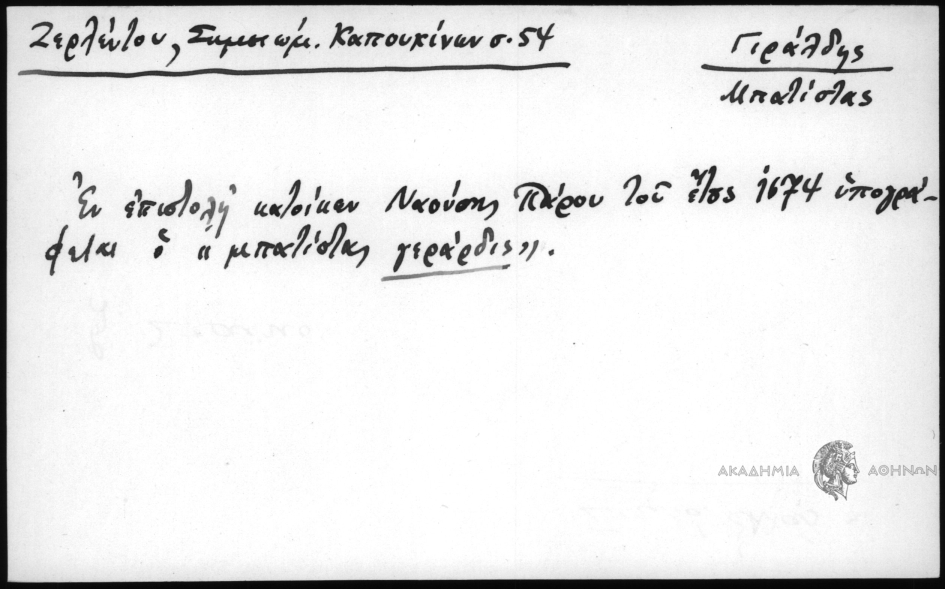 Ζερλέντου, Σημειώμ. Καπουκίνων σ. 54
Γιράλδης
Μπατίστας
Ἐν ἐπιστολῇ κατοίκων Ναούσης Πάρου τοῦ ἔτους 1674 ὑπογρά-
φεται ὁ «μπατίστας γεράρδις».
ΑΚΑΔΗΜΙΑ ΑΘΗΝΩΝ